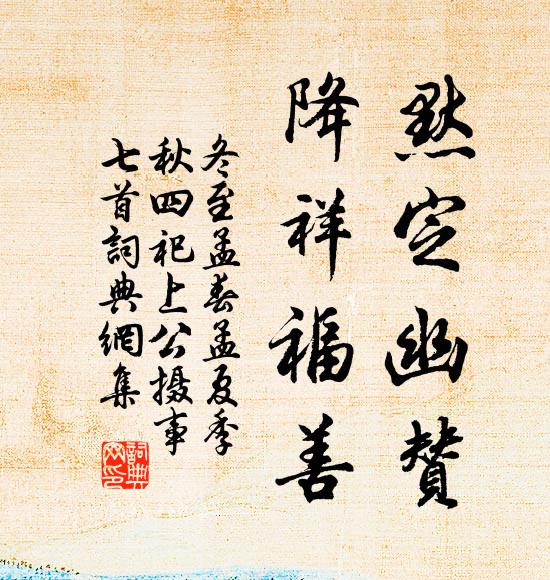 默定幽贊
降祥福善
冬至孟春孟夏季
秋四祀上公摄事
七首詞典網集
詞典
网印